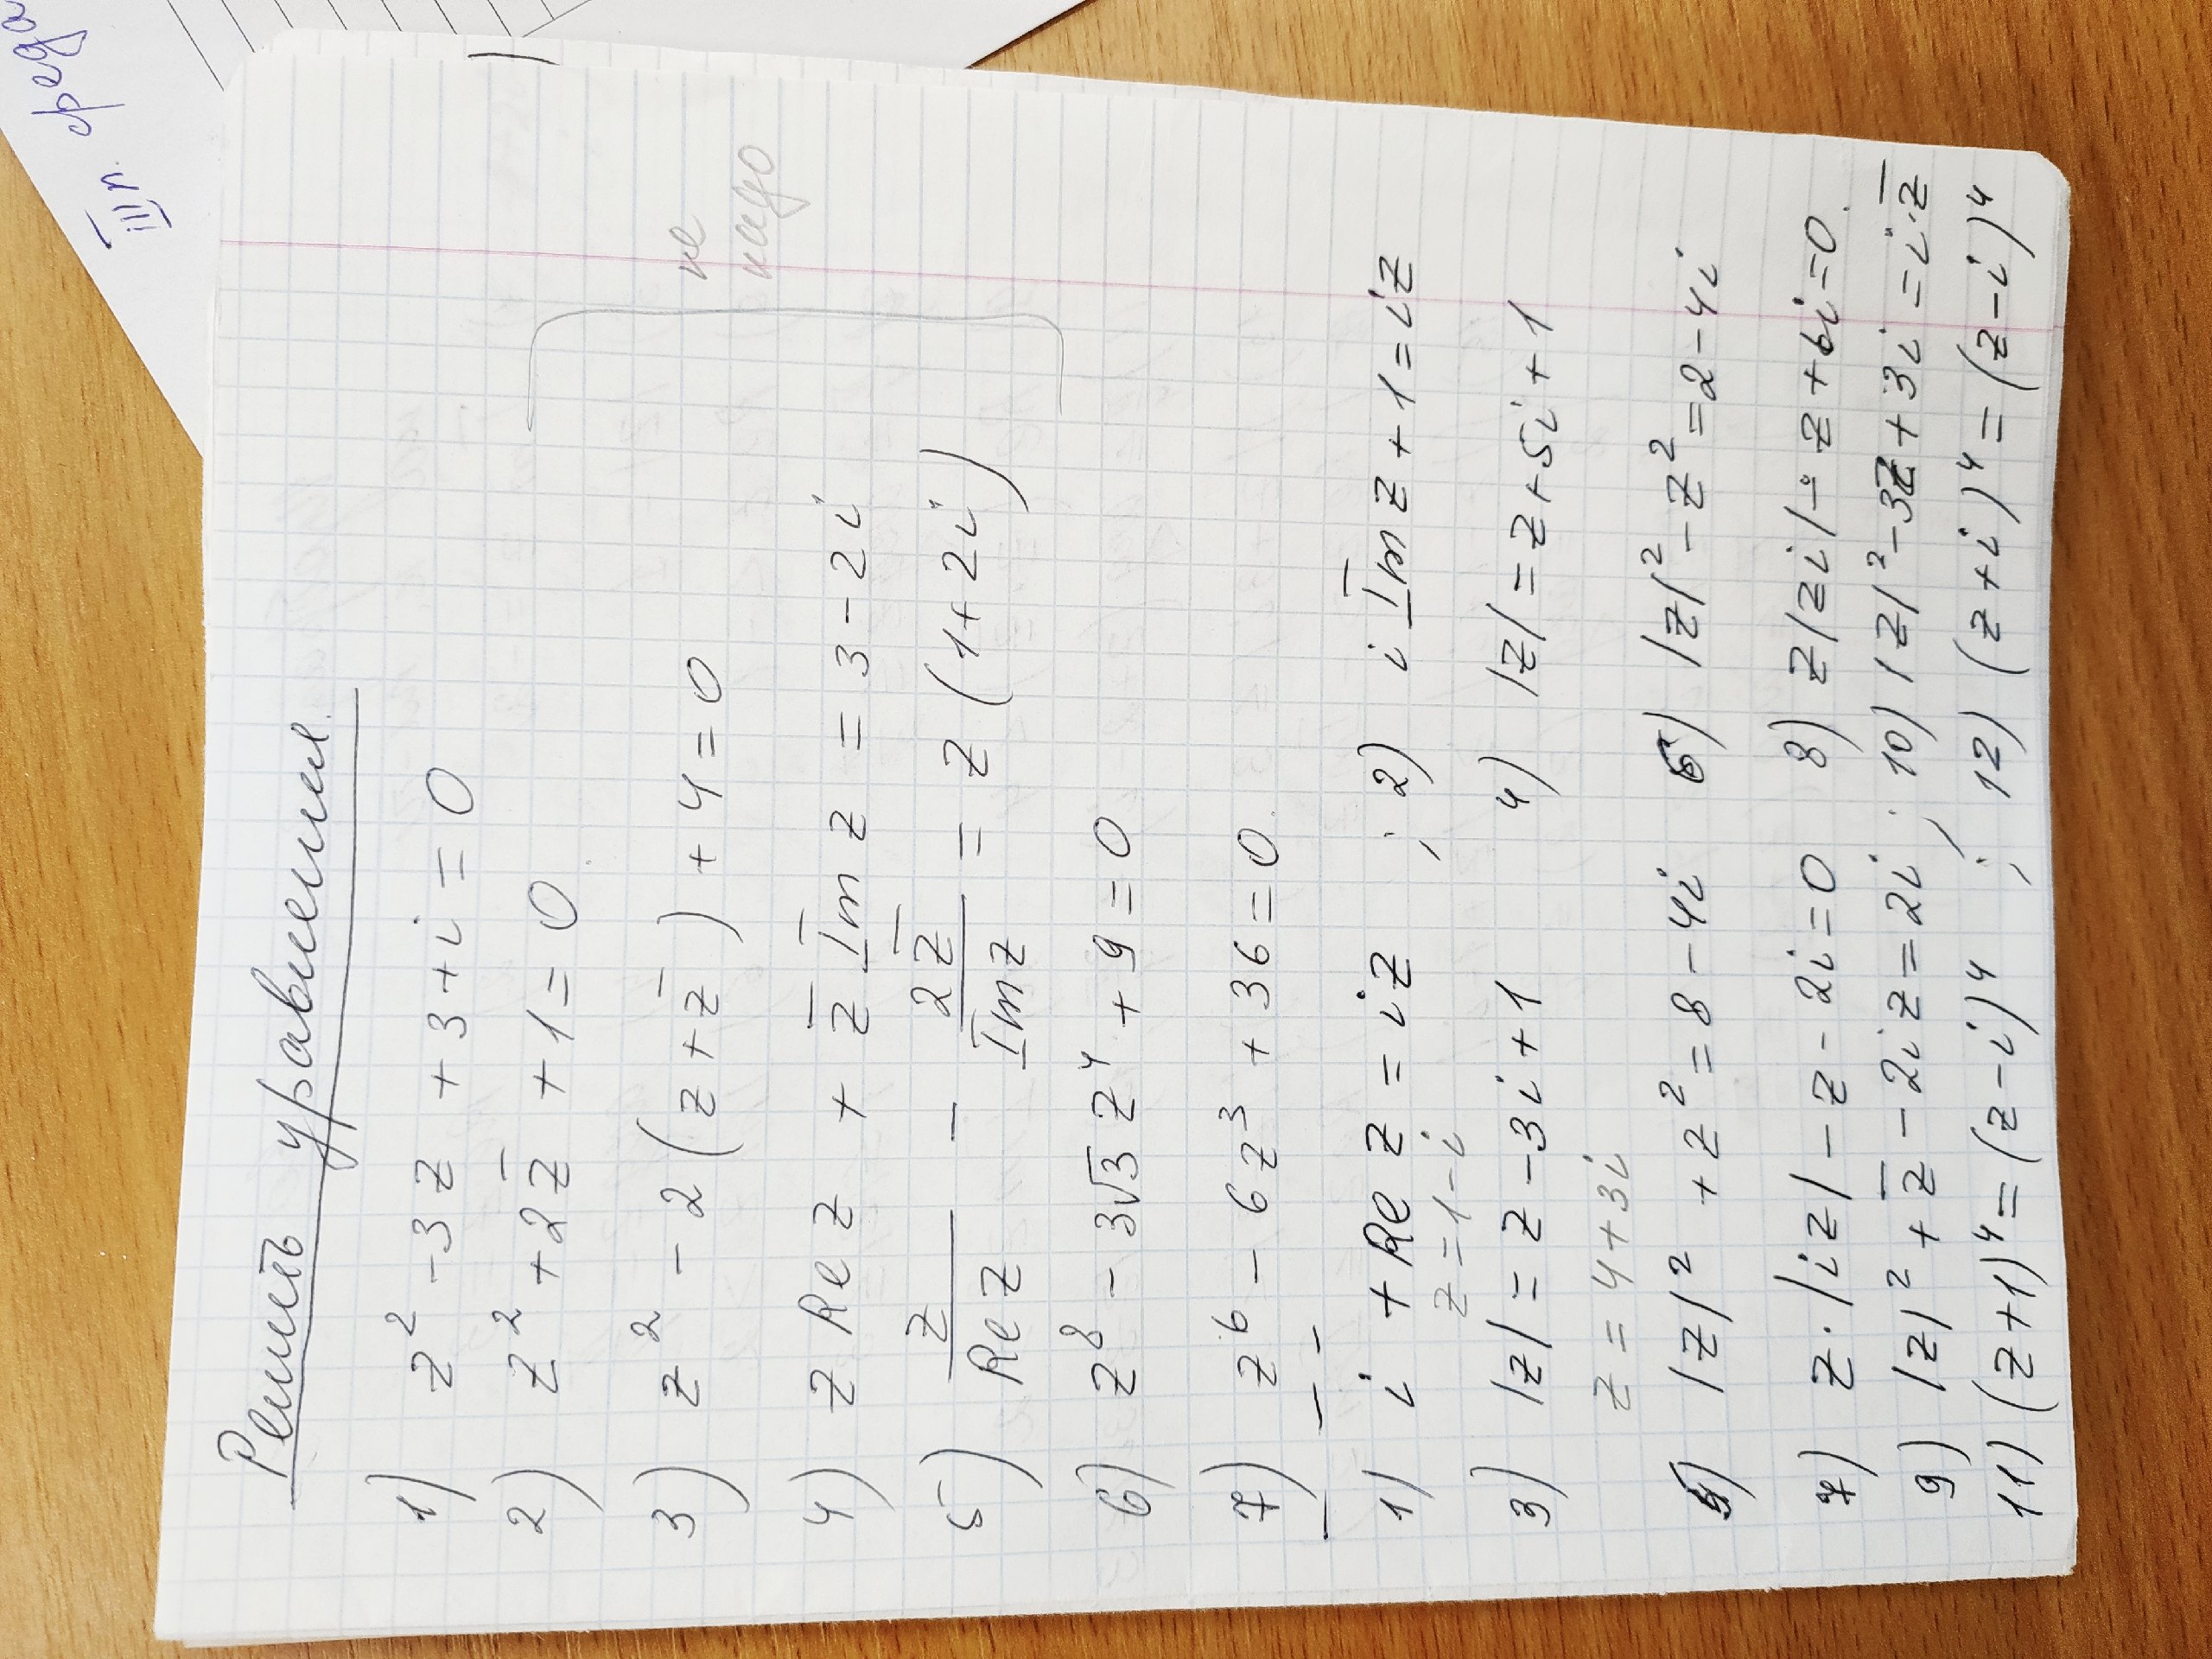 III п. среда
Решить уравнения.
1) z² - 3z + 3 + i = 0
2) z² + 2z̄ + 1 = 0
3) z² - 2(z + z̄) + 4 = 0
не
надо
4) z Re z + z̄ Im z = 3 - 2i
5) z/Re z - 2z̄/Im z = z(1 + 2i)
6) z⁸ - 3√3 z⁴ + 9 = 0
7) z⁶ - 6z³ + 36 = 0.
1) i + Re z = iz ; 2) i Im z + 1 = iz
z = 1 - i
3) |z| = z - 3i + 1 4) |z| = z + 5i + 1
z = 4 + 3i
5) |z|² + z² = 8 - 4i 6) |z|² - z² = 2 - 4i
7) z·|iz| - z - 2i = 0 8) z|zi| - z + 6i = 0.
9) |z|² + z̄ - 2iz = 2i ; 10) |z|² - 3z + 3i = i·z̄
11) (z+1)⁴ = (z-i)⁴ ; 12) (z+i)⁴ = (z-i)⁴